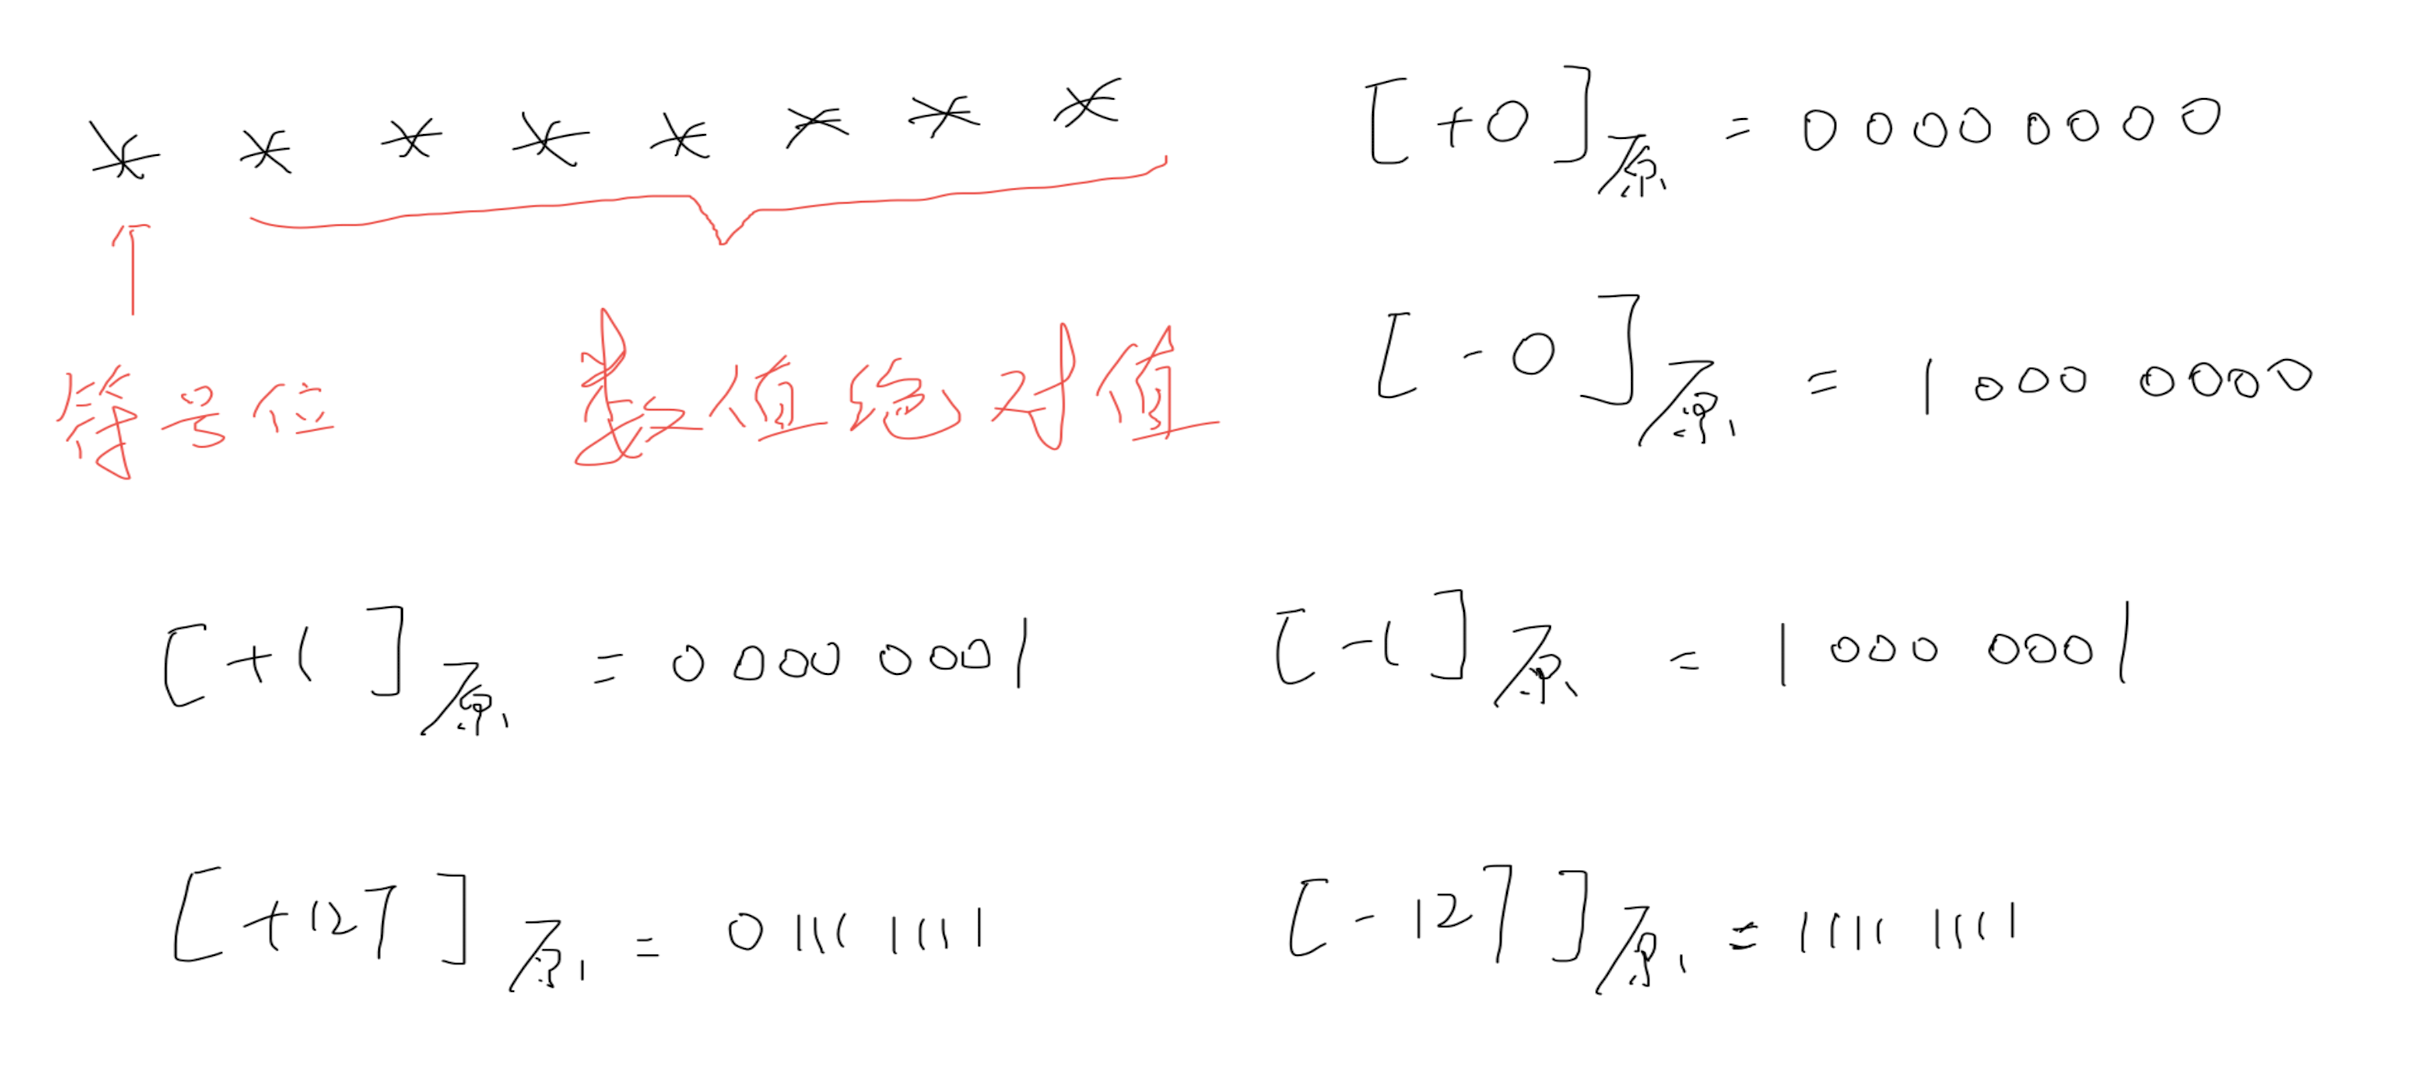 * * * * * * * *
符号位 数值绝对值
[+0]原 = 0 0 0 0 0 0 0 0
[-0]原 = 1 000 0000
[+1]原 = 0 000 0001
[-1]原 = 1 000 0001
[+127]原 = 0 111 1111
[-127]原 = 1111 1111